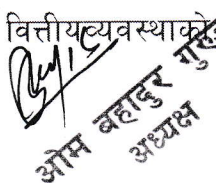 वित्तीय व्यवस्थाको
ओम बहादुर
अध्यक्ष